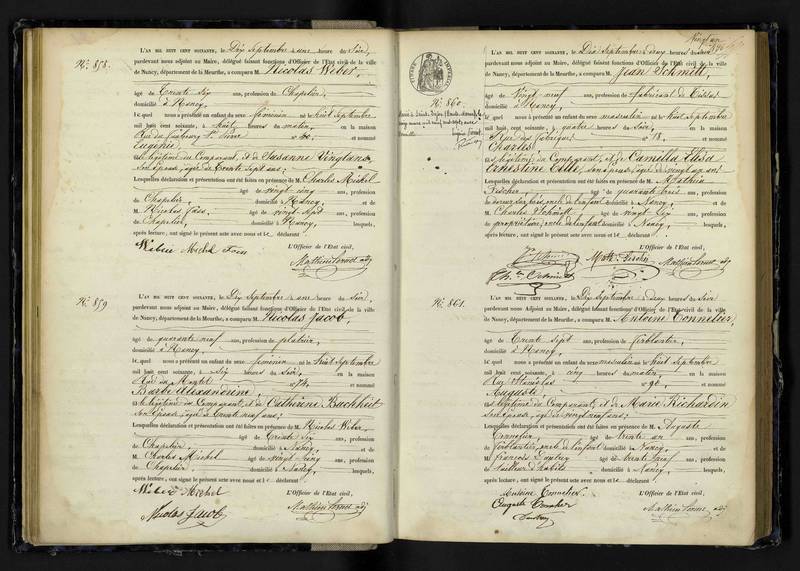 N° 858.
L'AN MIL HUIT CENT SOIXANTE, le Dix Septembre à une heure du Soir,
pardevant nous adjoint au Maire, délégué faisant fonctions d'Officier de l'Etat civil de la ville
de Nancy, département de la Meurthe, a comparu M. Nicolas Weber,
âgé de Trente Six ans, profession de Chapelier,
domicilié à Nancy,
lequel nous a présenté un enfant du sexe féminin né le huit Septembre
mil huit cent soixante, à huit heures du matin, en la maison
Rue du faubourg St Pierre n° et nommé
Eugénie,
légitime du Comparant, et de Susanne
son Epouse, âgée de Trente Sept ans;
Lesquelles déclaration et présentation ont été faites en présence de M. Charles Michel
âgé de vingt cinq ans, profession
de Chapelier, domicilié à Nancy, et de
M. Nicolas âgé de vingt Sept ans, profession
de Chapelier, domicilié à Nancy, lesquels,
après lecture, ont signé le présent acte avec nous et le déclarant
Weber Michel
L'Officier de l'Etat civil,
N° 859
L'AN MIL HUIT CENT SOIXANTE, le Dix Septembre à une heure du Soir,
pardevant nous adjoint au Maire, délégué faisant fonctions d'Officier de l'Etat civil de la ville
de Nancy, département de la Meurthe, a comparu M. Nicolas Jacob,
âgé de quarante neuf ans, profession de platrier,
domicilié à Nancy,
lequel nous a présenté un enfant du sexe féminin né le huit Septembre
mil huit cent soixante, à Six heures du Soir, en la maison
Rue du n° 74, et nommé
Barbe Alexandrine,
légitime du Comparant, et de Catherine
son Epouse, âgée de Trente neuf ans;
Lesquelles déclaration et présentation ont été faites en présence de M. Nicolas Weber,
âgé de Trente Six ans, profession
de Chapelier, domicilié à Nancy, et de
M. Charles Michel âgé de vingt Cinq ans, profession
de Chapelier, domicilié à Nancy, lesquels,
après lecture, ont signé le présent acte avec nous et le déclarant
Weber Michel
L'Officier de l'Etat civil,
Nicolas Jacob
N° 860
L'AN MIL HUIT CENT SOIXANTE, le Dix Septembre à deux heures du Soir
pardevant nous adjoint au Maire, délégué faisant fonctions d'Officier de l'Etat civil de la ville
de Nancy, département de la Meurthe, a comparu M. Jean Schmitt,
âgé de Vingt neuf ans, profession de fabricant de Tissus
domicilié à Nancy,
lequel nous a présenté un enfant du sexe masculin né le huit Septembre
mil huit cent soixante, à quatre heures du Soir, en la maison
Rue des fabriques n° 18, et nommé
Charles
légitime du Comparant, et de Camilla Elisa
Ernestine son épouse, âgée de vingt un ans
Lesquelles déclaration et présentation ont été faites en présence de M. Mathias
Fischer, âgé de quarante trois ans, profession
de oncle de l'enfant domicilié à Nancy, et de
M. Charles Schmitt âgé de vingt Six ans, profession
de propriétaire, oncle de l'enfant domicilié à Nancy, lesquels,
après lecture, ont signé le présent acte avec nous et le déclarant
L'Officier de l'Etat civil,
N° 861.
L'AN MIL HUIT CENT SOIXANTE, le Dix Septembre à deux heures du Soir
pardevant nous adjoint au Maire, délégué faisant fonctions d'Officier de l'Etat civil de la ville
de Nancy, département de la Meurthe, a comparu M. Antoine Tonnelier,
âgé de Trente Sept ans, profession de ferblantier,
domicilié à Nancy,
lequel nous a présenté un enfant du sexe masculin né le huit Septembre
mil huit cent soixante, à cinq heures du matin, en la maison
Rue Stanislas n° 90, et nommé
Auguste
légitime du Comparant, et de Marie Richardin
son Epouse, âgée de vingt neuf ans;
Lesquelles déclaration et présentation ont été faites en présence de M. Auguste
Tonnelier, âgé de trente un ans, profession
de ferblantier, oncle de l'enfant domicilié à Nancy, et de
M. françois âgé de trente neuf ans, profession
de tailleur d'habits domicilié à Nancy, lesquels,
après lecture, ont signé le présent acte avec nous et le déclarant
Antoine Tonnelier
L'Officier de l'Etat civil,
Auguste Tonnelier